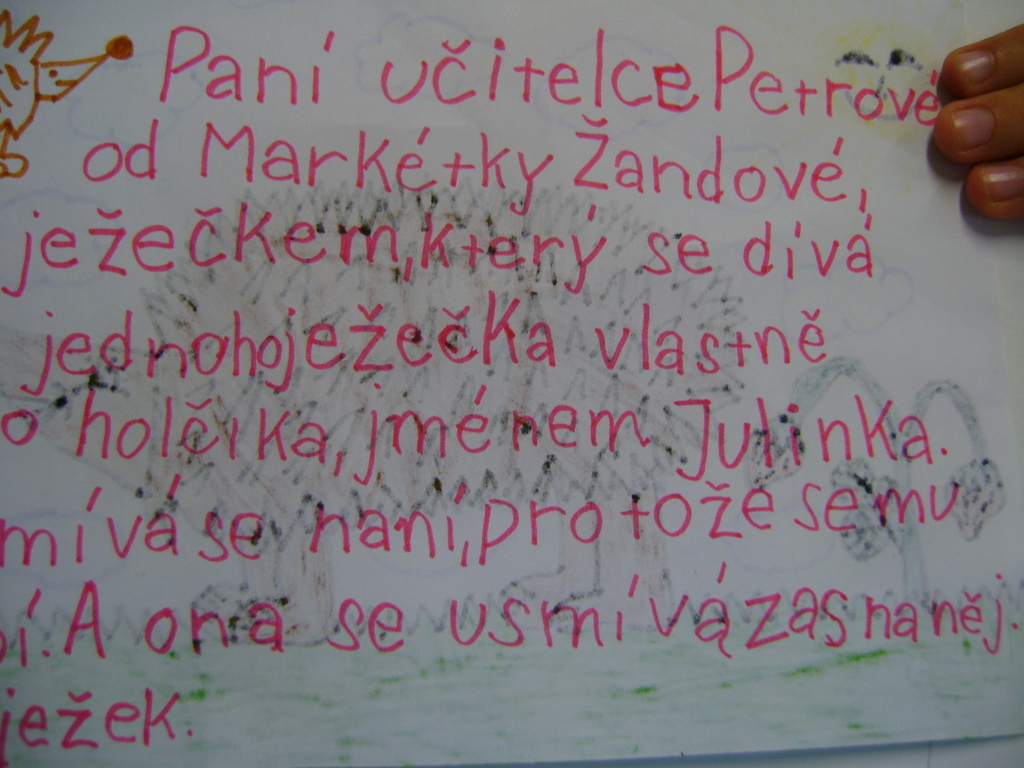 Paní učitelce Petrové
od Markétky Žandové,
ježečkem, který se dívá
jednoho ježečka vlastně
holčička, jménem Julinka.
se na ní, protože se mu
A ona se usmívá zas na něj.
ježek.